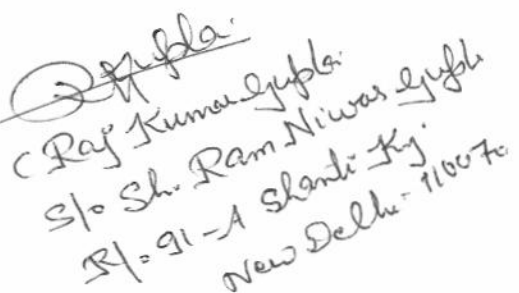 RGupta.
( Raj Kumar Gupta.
S/o Sh. Ram Niwas Gupta
R/o 91-A Shanti Kj.
New Delhi - 110070